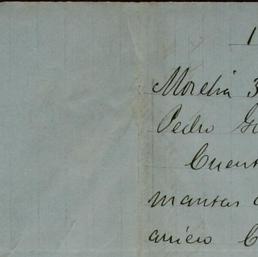 1
Morelia 3
Pedro
Cuent
mantas
arriero C